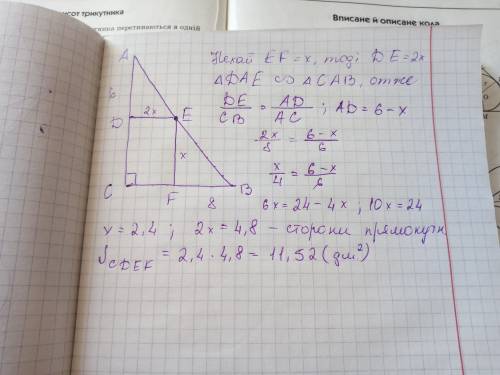 сот трикутника
перетинаються в одній
Вписане й описане кола
Нехай EF = x, тоді DE = 2x
△DAE ∽ △CAB, отже
DE/CB = AD/AC ; AD = 6 – x
2x/8 = (6 – x)/6
x/4 = (6 – x)/6
6x = 24 – 4x ; 10x = 24
x = 2,4 ; 2x = 4,8 – сторони прямокутн
S CDEF = 2,4 · 4,8 = 11,52 (дм²)
A
6
D
2x
E
x
C
F
8
B